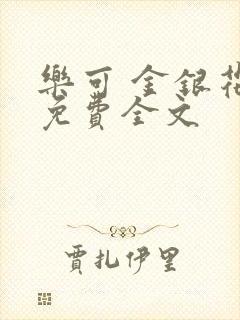 樂可 金銀花
免費全文
賈扎伊里